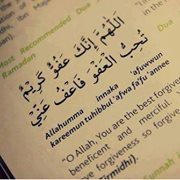 Most Recommended Dua
Ramadan
Dua
اللَّهُمَّ إِنَّكَ عَفُوٌّ كَرِيمٌ
تُحِبُّ الْعَفْوَ فَاعْفُ عَنِّي
Allahumma innaka 'afuwwun
kareemun tuhibbul 'afwa fa'fu 'annee
"O Allah, You are the best forgiver
beneficent and merciful.
forgiveness so forgive